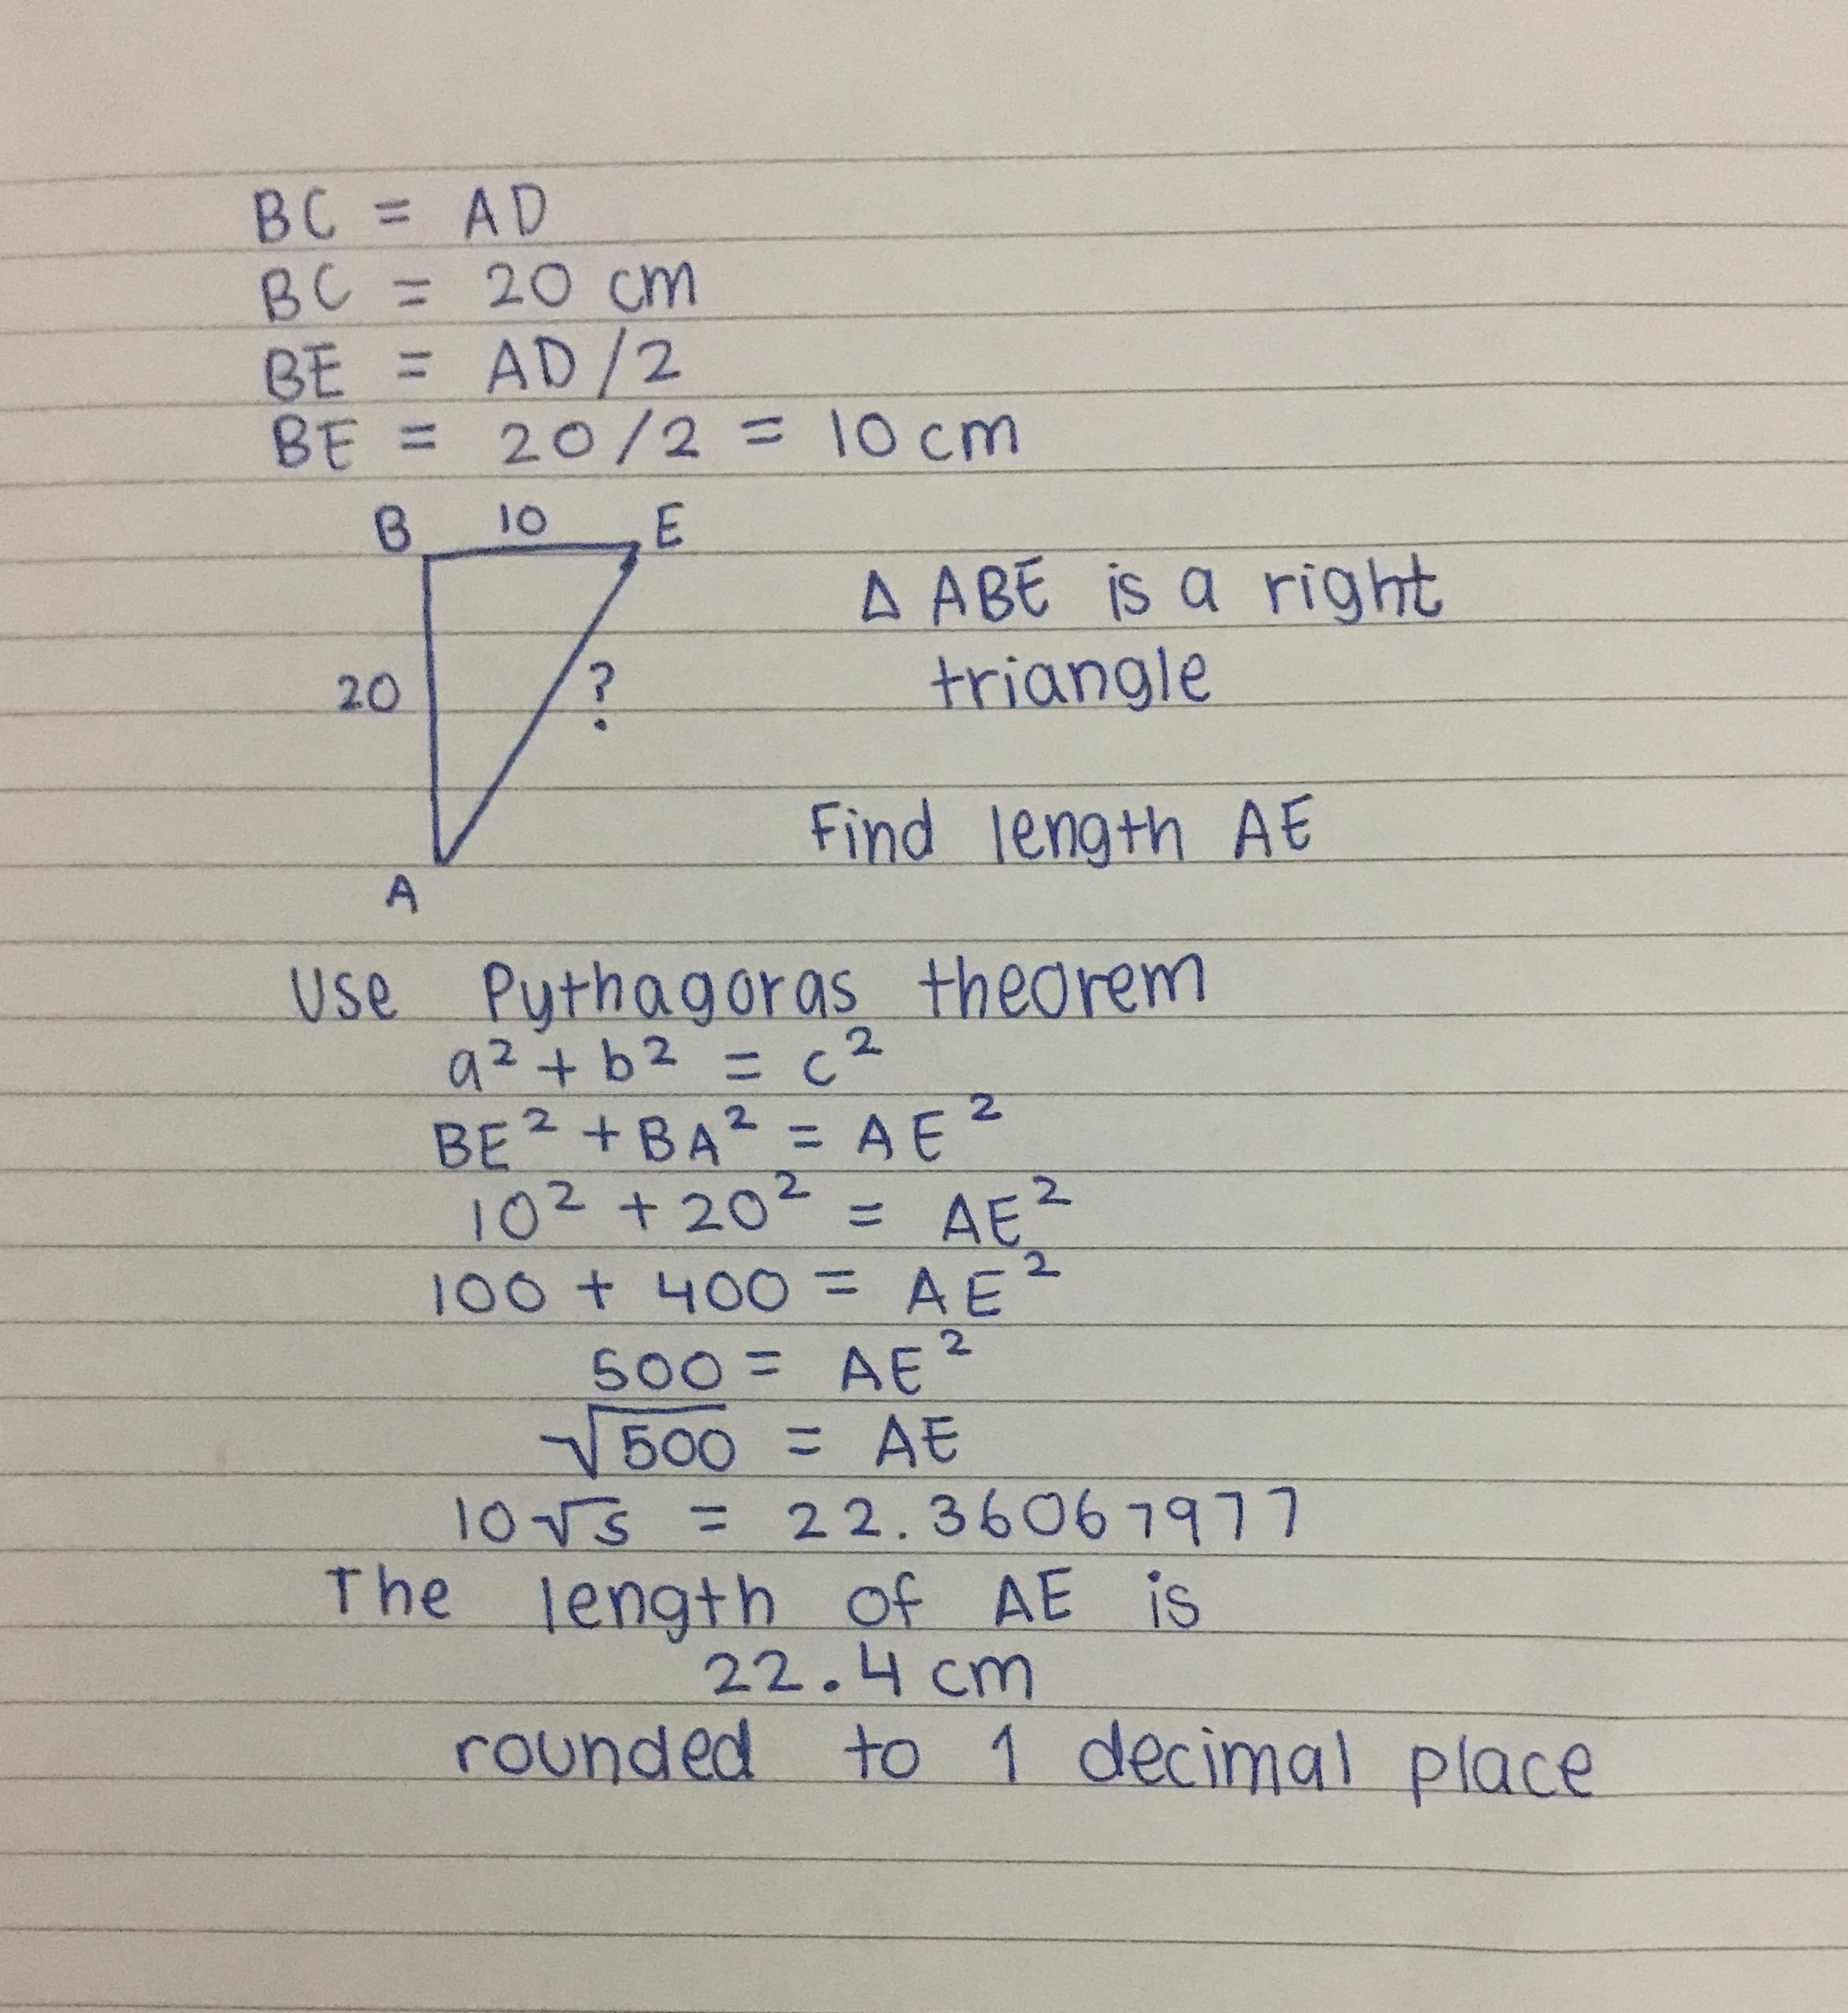 BC = AD
BC = 20 cm
BE = AD/2
BE = 20/2 = 10 cm
B 10 E
Δ ABE is a right
triangle
20 ?
Find length AE
A
Use Pythagoras theorem
a² + b² = c²
BE² + BA² = AE²
10² + 20² = AE²
100 + 400 = AE²
500 = AE²
√500 = AE
10√5 = 22.36067977
The length of AE is
22.4 cm
rounded to 1 decimal place